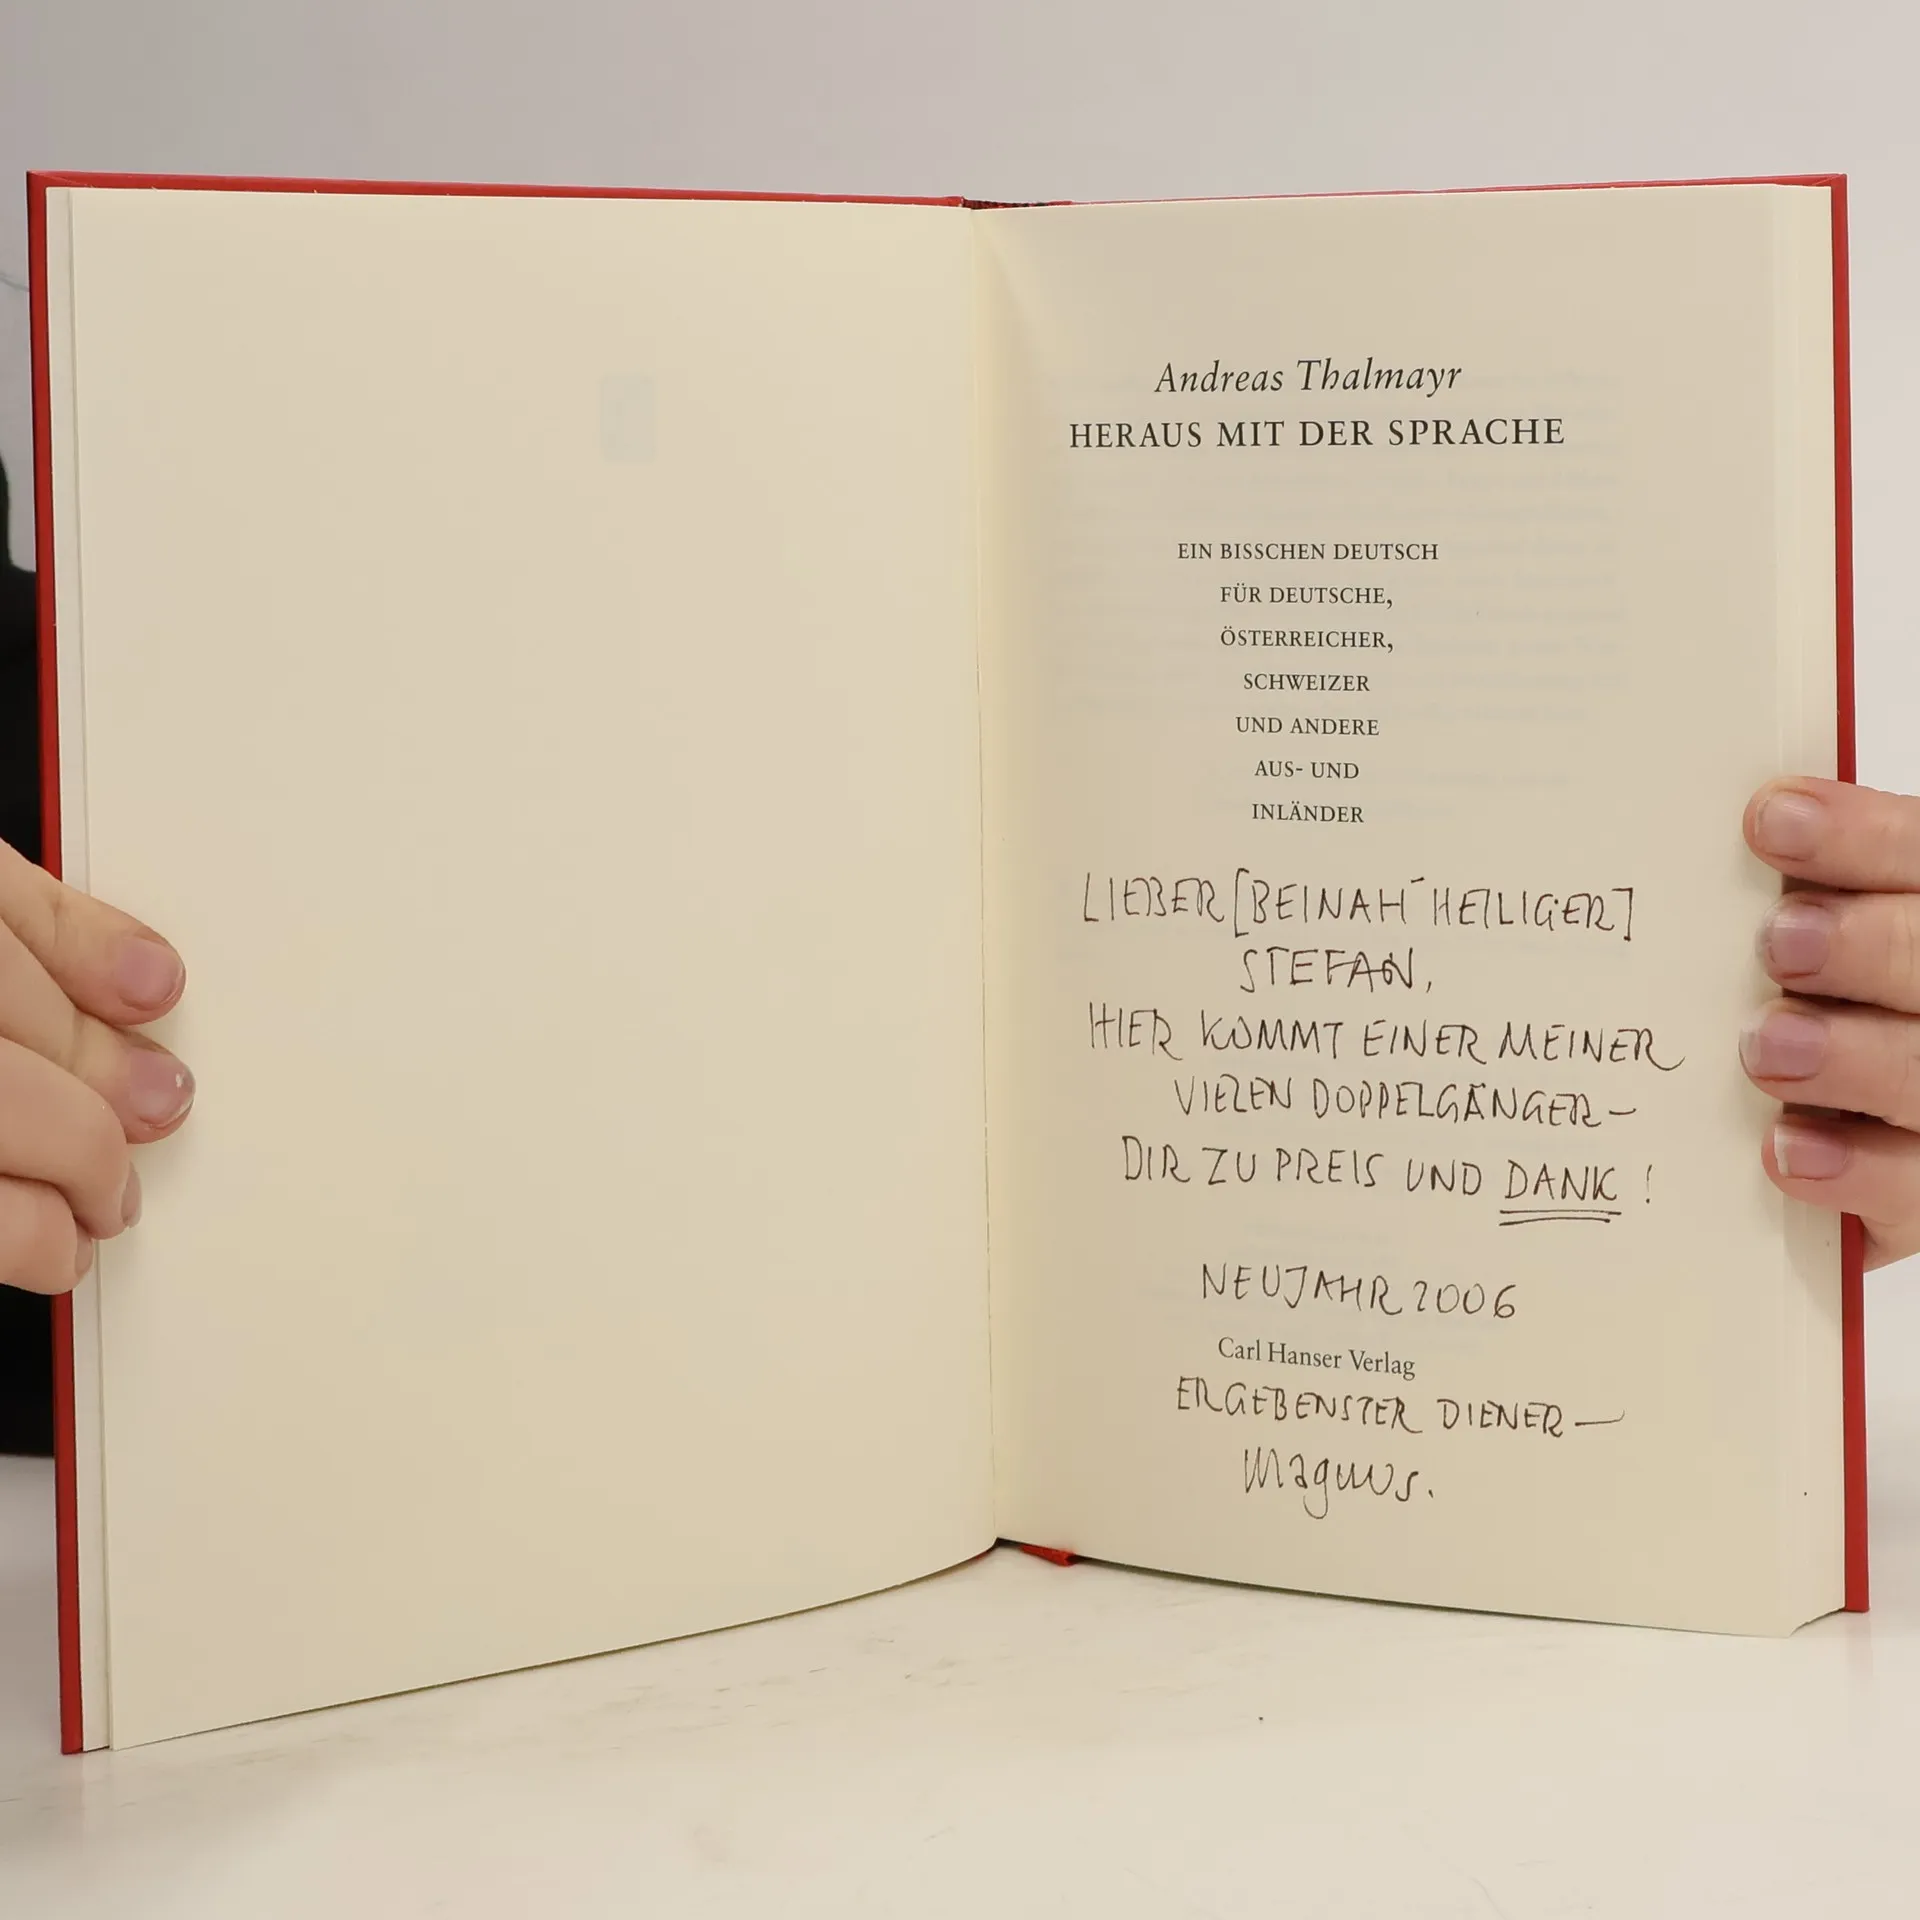 Andreas Thalmayr
HERAUS MIT DER SPRACHE
EIN BISSCHEN DEUTSCH
FÜR DEUTSCHE,
ÖSTERREICHER,
SCHWEIZER
UND ANDERE
AUS- UND
INLÄNDER
LIEBER [BEINAH-HEILIGER]
STEFAN,
HIER KOMMT EINER MEINER
VIELEN DOPPELGÄNGER –
DIR ZU PREIS UND DANK!
NEUJAHR 2006
Carl Hanser Verlag
ERGEBENSTER DIENER –
Magnus.